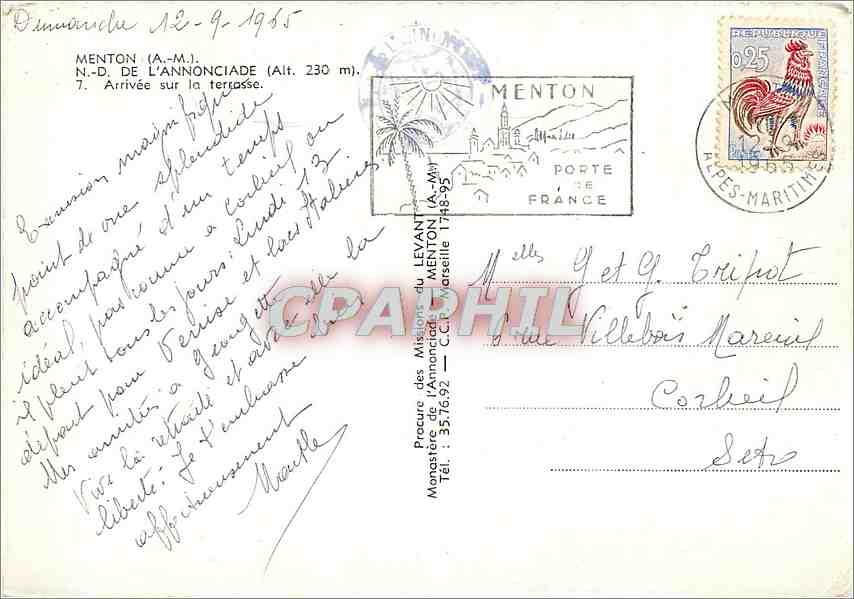 Dimanche 12-9-1965
MENTON (A.-M.).
N.-D. DE L'ANNONCIADE (Alt. 230 m).
7. Arrivée sur la terrasse.
Excursion magnifique
point de vue splendide
accompagné d'un temps
idéal, pas comme à Corbeil ou
il pleut tous les jours. Lundi 13
départ pour Venise et lacs Italiens
Mes amitiés à Georgette
Vive la retraite et avec elle la
liberté. Je t'embrasse
affectueusement
MENTON
PORTE
DE
FRANCE
RÉPUBLIQUE FRANÇAISE
0,25
1965
ALPES-MARITIMES
Procure des Missions du LEVANT
Monastère de l'Annonciade - MENTON (A.-M.)
Tél. : 35.76.92 - C.C.P. Marseille 1748-95
Melles G et G. Tripot
6 rue Villebois Mareuil
Corbeil
S et O
CPAPHIL